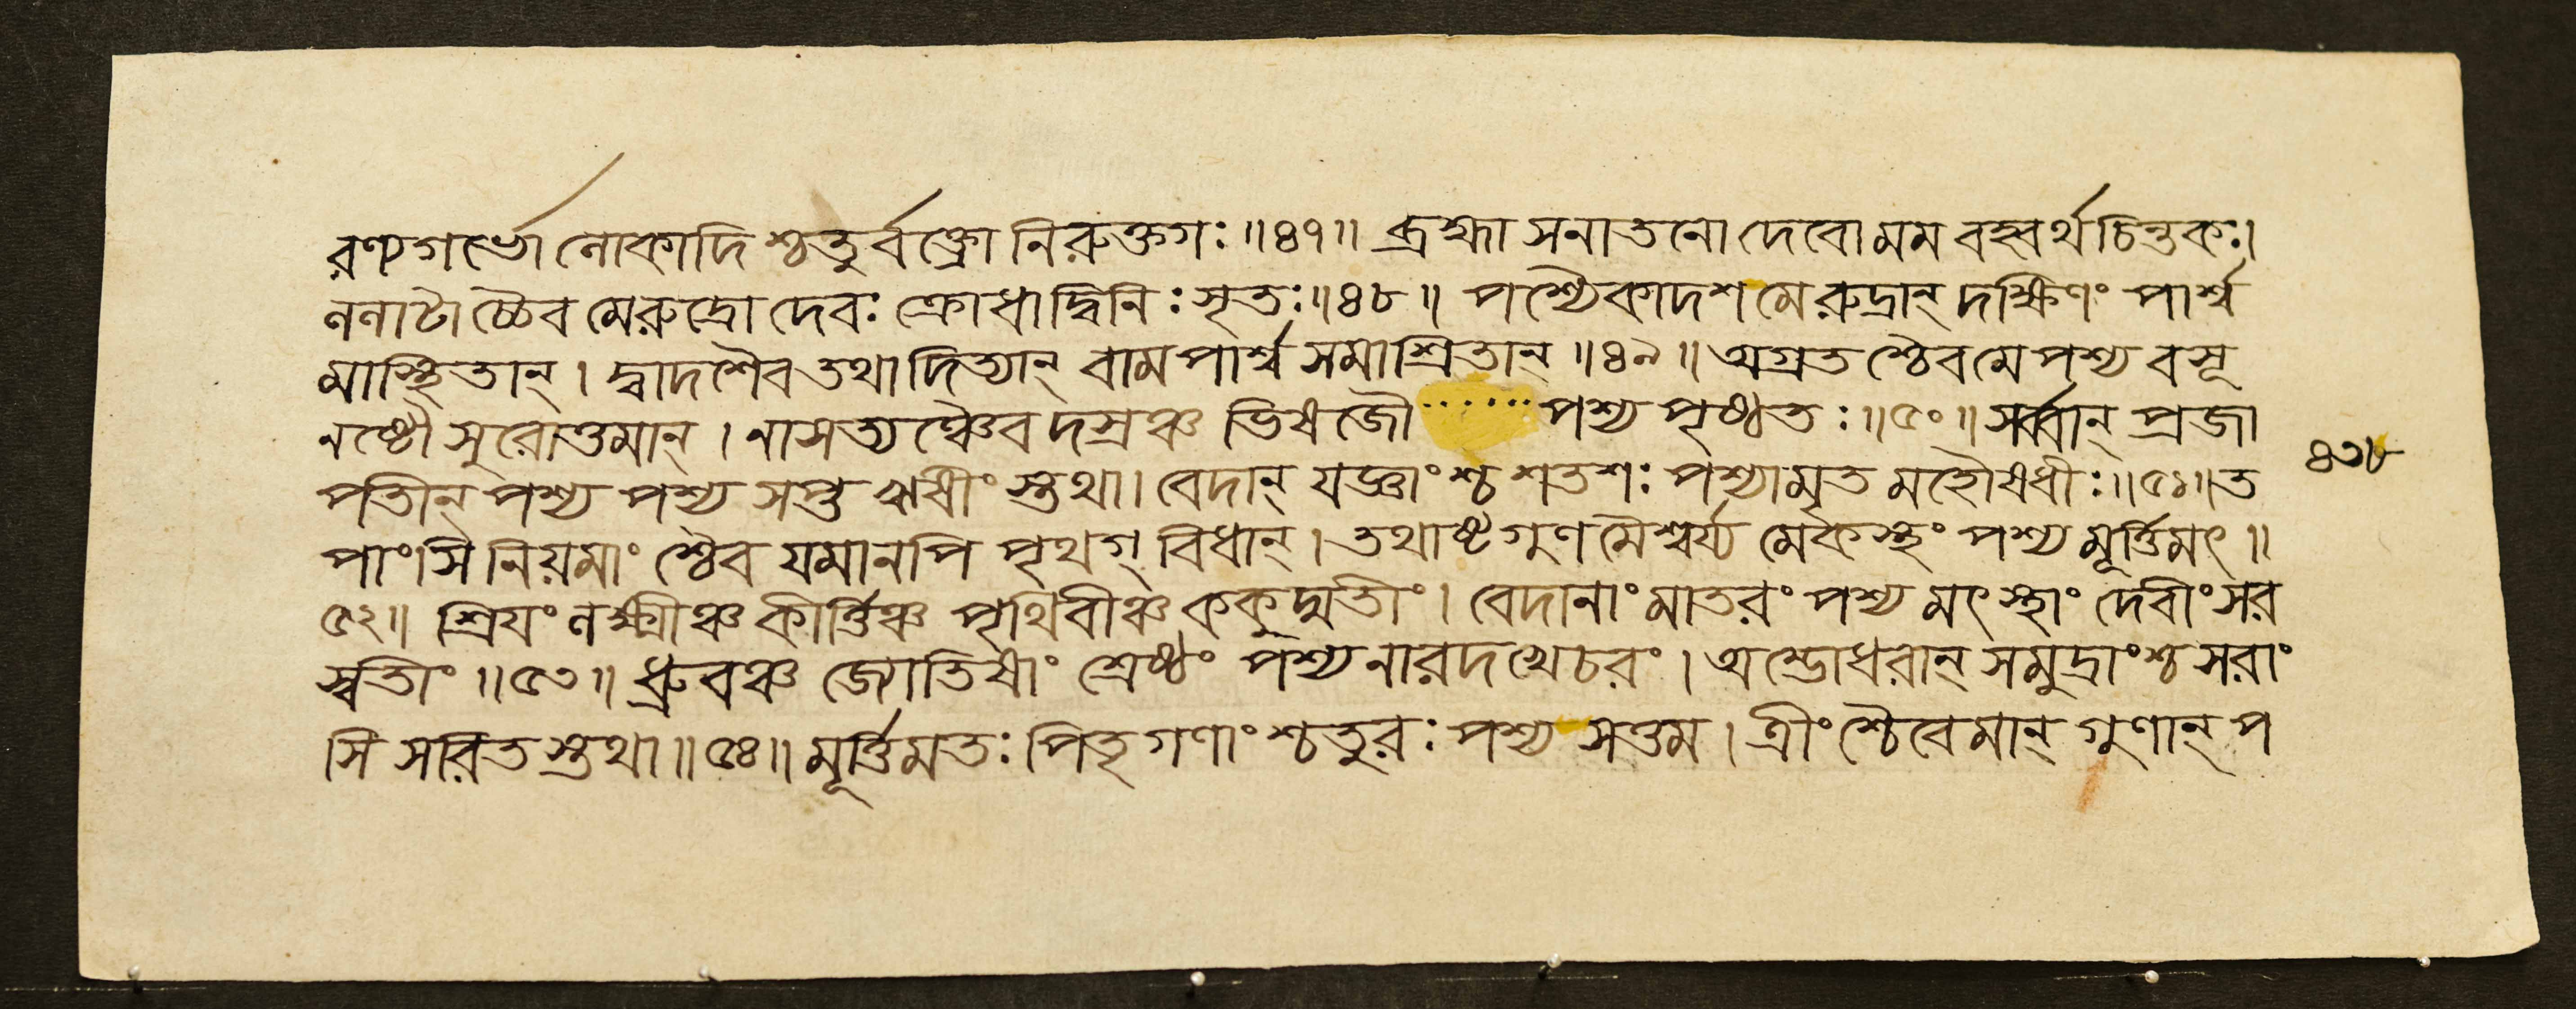 রণ্যগর্ভো লোকাদিশ্চতুর্বক্ত্রো নিরুক্তগঃ॥৪৭॥ ব্রহ্মা সনাতনো দেবো মম বহ্বর্থচিন্তকঃ।
ললাটাচ্চৈব মে রুদ্রো দেবঃ ক্রোধাদ্বিনিঃসৃতঃ॥৪৮॥ পশ্যৈকাদশ মে রুদ্রান্ দক্ষিণং পার্শ্ব
মাস্থিতান্। দ্বাদশৈব তথাদিত্যান্ বামপার্শ্ব সমাশ্রিতান্॥৪৯॥ অগ্রতশ্চৈব মে পশ্য বসূ
নষ্টৌ সুরোত্তমান্। নাসত্যঞ্চৈব দস্রঞ্চ ভিষজৌ ...... পশ্য পৃষ্ঠতঃ॥৫০॥ সর্ব্বান্ প্রজা
পতীন্ পশ্য পশ্য সপ্ত ঋষীংস্তথা। বেদান্ যজ্ঞাংশ্চ শতশঃ পশ্যামৃতমহৌষধীঃ॥৫১॥ ত
পাংসি নিয়মাংশ্চৈব যমানপি পৃথগ্ বিধান্। তথাষ্টগুণমৈশ্বর্য্যমেকস্থং পশ্য মূর্ত্তিমৎ॥
৫২॥ শ্রিযং লক্ষ্মীঞ্চ কীর্ত্তিঞ্চ পৃথিবীঞ্চ ককুদ্মতীং। বেদানাং মাতরং পশ্য মৎস্থাং দেবীং সর
স্বতীং॥৫৩॥ ধ্রুবঞ্চ জ্যোতিষাং শ্রেষ্ঠং পশ্য নারদ খেচরং। অম্ভোধরান্ সমুদ্রাংশ্চ সরাং
সি সরিতস্তথা॥৫৪॥ মূর্ত্তিমতঃ পিতৃগণাংশ্চতুরঃ পশ্য সত্তম। ত্রীংশ্চৈবেমান্ গুণান্ প
৪৩৮